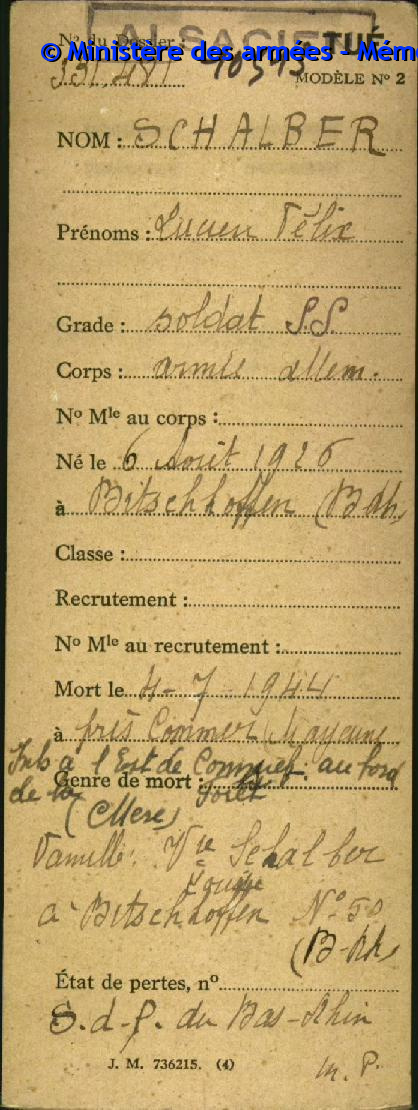 ALSACIE TUÉ
Nº du Dossier :
© Ministère des armées - Mémo
331.481 40343
MODÈLE Nº 2
NOM : SCHALBER
Prénoms : Lucien Félix
Grade : soldat S.S.
Corps : armée allem.
Nº Mle au corps :
Né le 6 Août 1926
à Bitschhoffen (Bdh)
Classe :
Recrutement :
Nº Mle au recrutement :
Mort le 4-7-1944
à près Commer Mayenne
Inh à l'Est de Commer au bord
Genre de mort :
de la forêt
(Mère)
Famille : Vve Schalber
Louise
à Bitschhoffen Nº 50
(B-Rh)
État de pertes, nº
S.d.f. du Bas-Rhin
J. M. 736215. (4)
m. P.